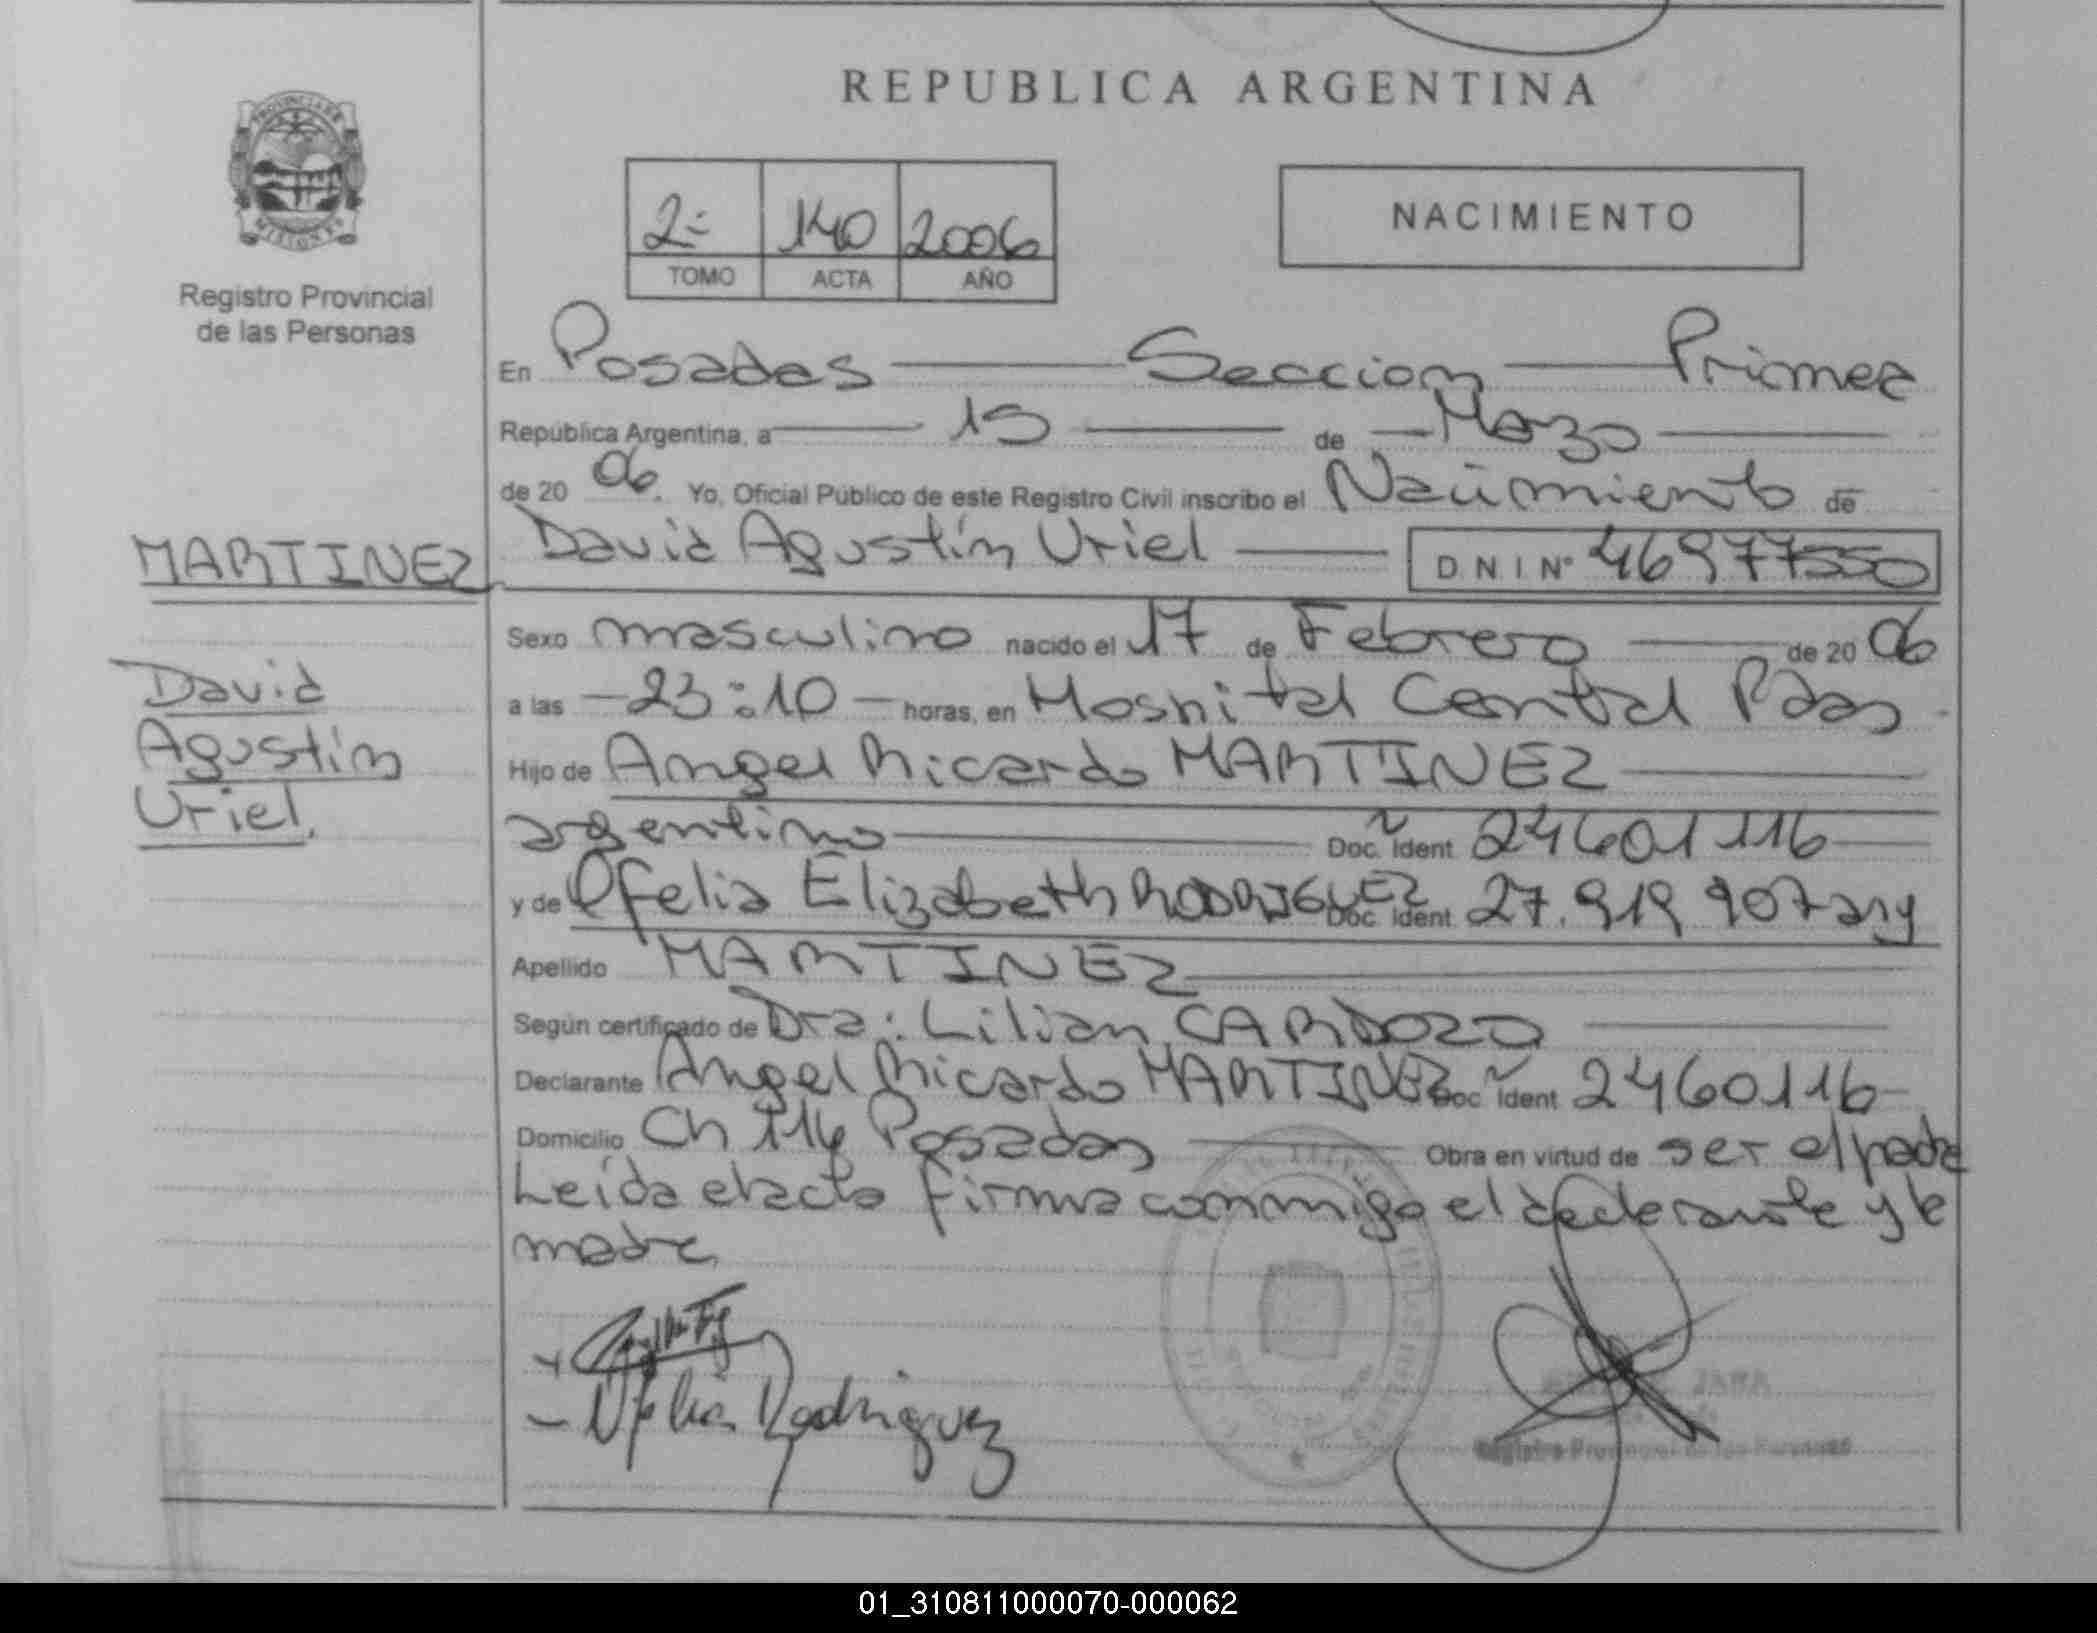 REPUBLICA ARGENTINA
PROVINCIA DE
MISIONES
Registro Provincial
de las Personas
2=
140
2006
TOMO
ACTA
AÑO
NACIMIENTO
En Posadas Seccion Primera
República Argentina, a 15 de Marzo
de 20 06. Yo, Oficial Público de este Registro Civil inscribo el Nacimiento de
MARTINEZ
David Agustín Uriel D N I Nº 46977550
Sexo masculino nacido el 17 de Febrero de 20 06
David
Agustín
Uriel.
a las 23:10 horas, en Hospital Central Pdas
Hijo de Angel Ricardo MARTINEZ
argentino Doc. Ident 24601116
y de Ofelia Elizabeth RODRIGUEZ Doc. Ident 27.919.907 arg
Apellido MARTINEZ
Según certificado de Dra: Lilian CARDOZO
Declarante Angel Ricardo MARTINEZ Doc Ident 24601116
Domicilio Ch 116 Posadas Obra en virtud de ser el padre
Leída el acta firma conmigo el declarante y la
madre
Ofelia Rodriguez
Registro Provincial de las Personas
01_310811000070-000062